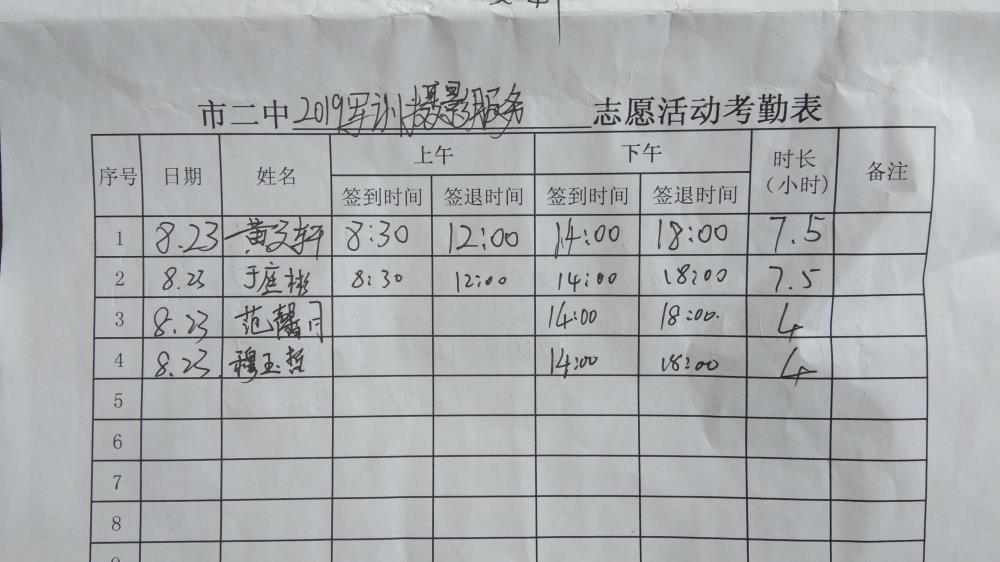 市二中2019军训摄影服务志愿活动考勤表
序号 日期 姓名 上午 下午 时长（小时） 备注
签到时间 签退时间 签到时间 签退时间
1 8.23 黄文轩 8:30 12:00 14:00 18:00 7.5
2 8.23 于庭彬 8:30 12:00 14:00 18:00 7.5
3 8.23 范馨月 14:00 18:00. 4
4 8.23. 穆玉哲 14:00 18:00 4
5
6
7
8